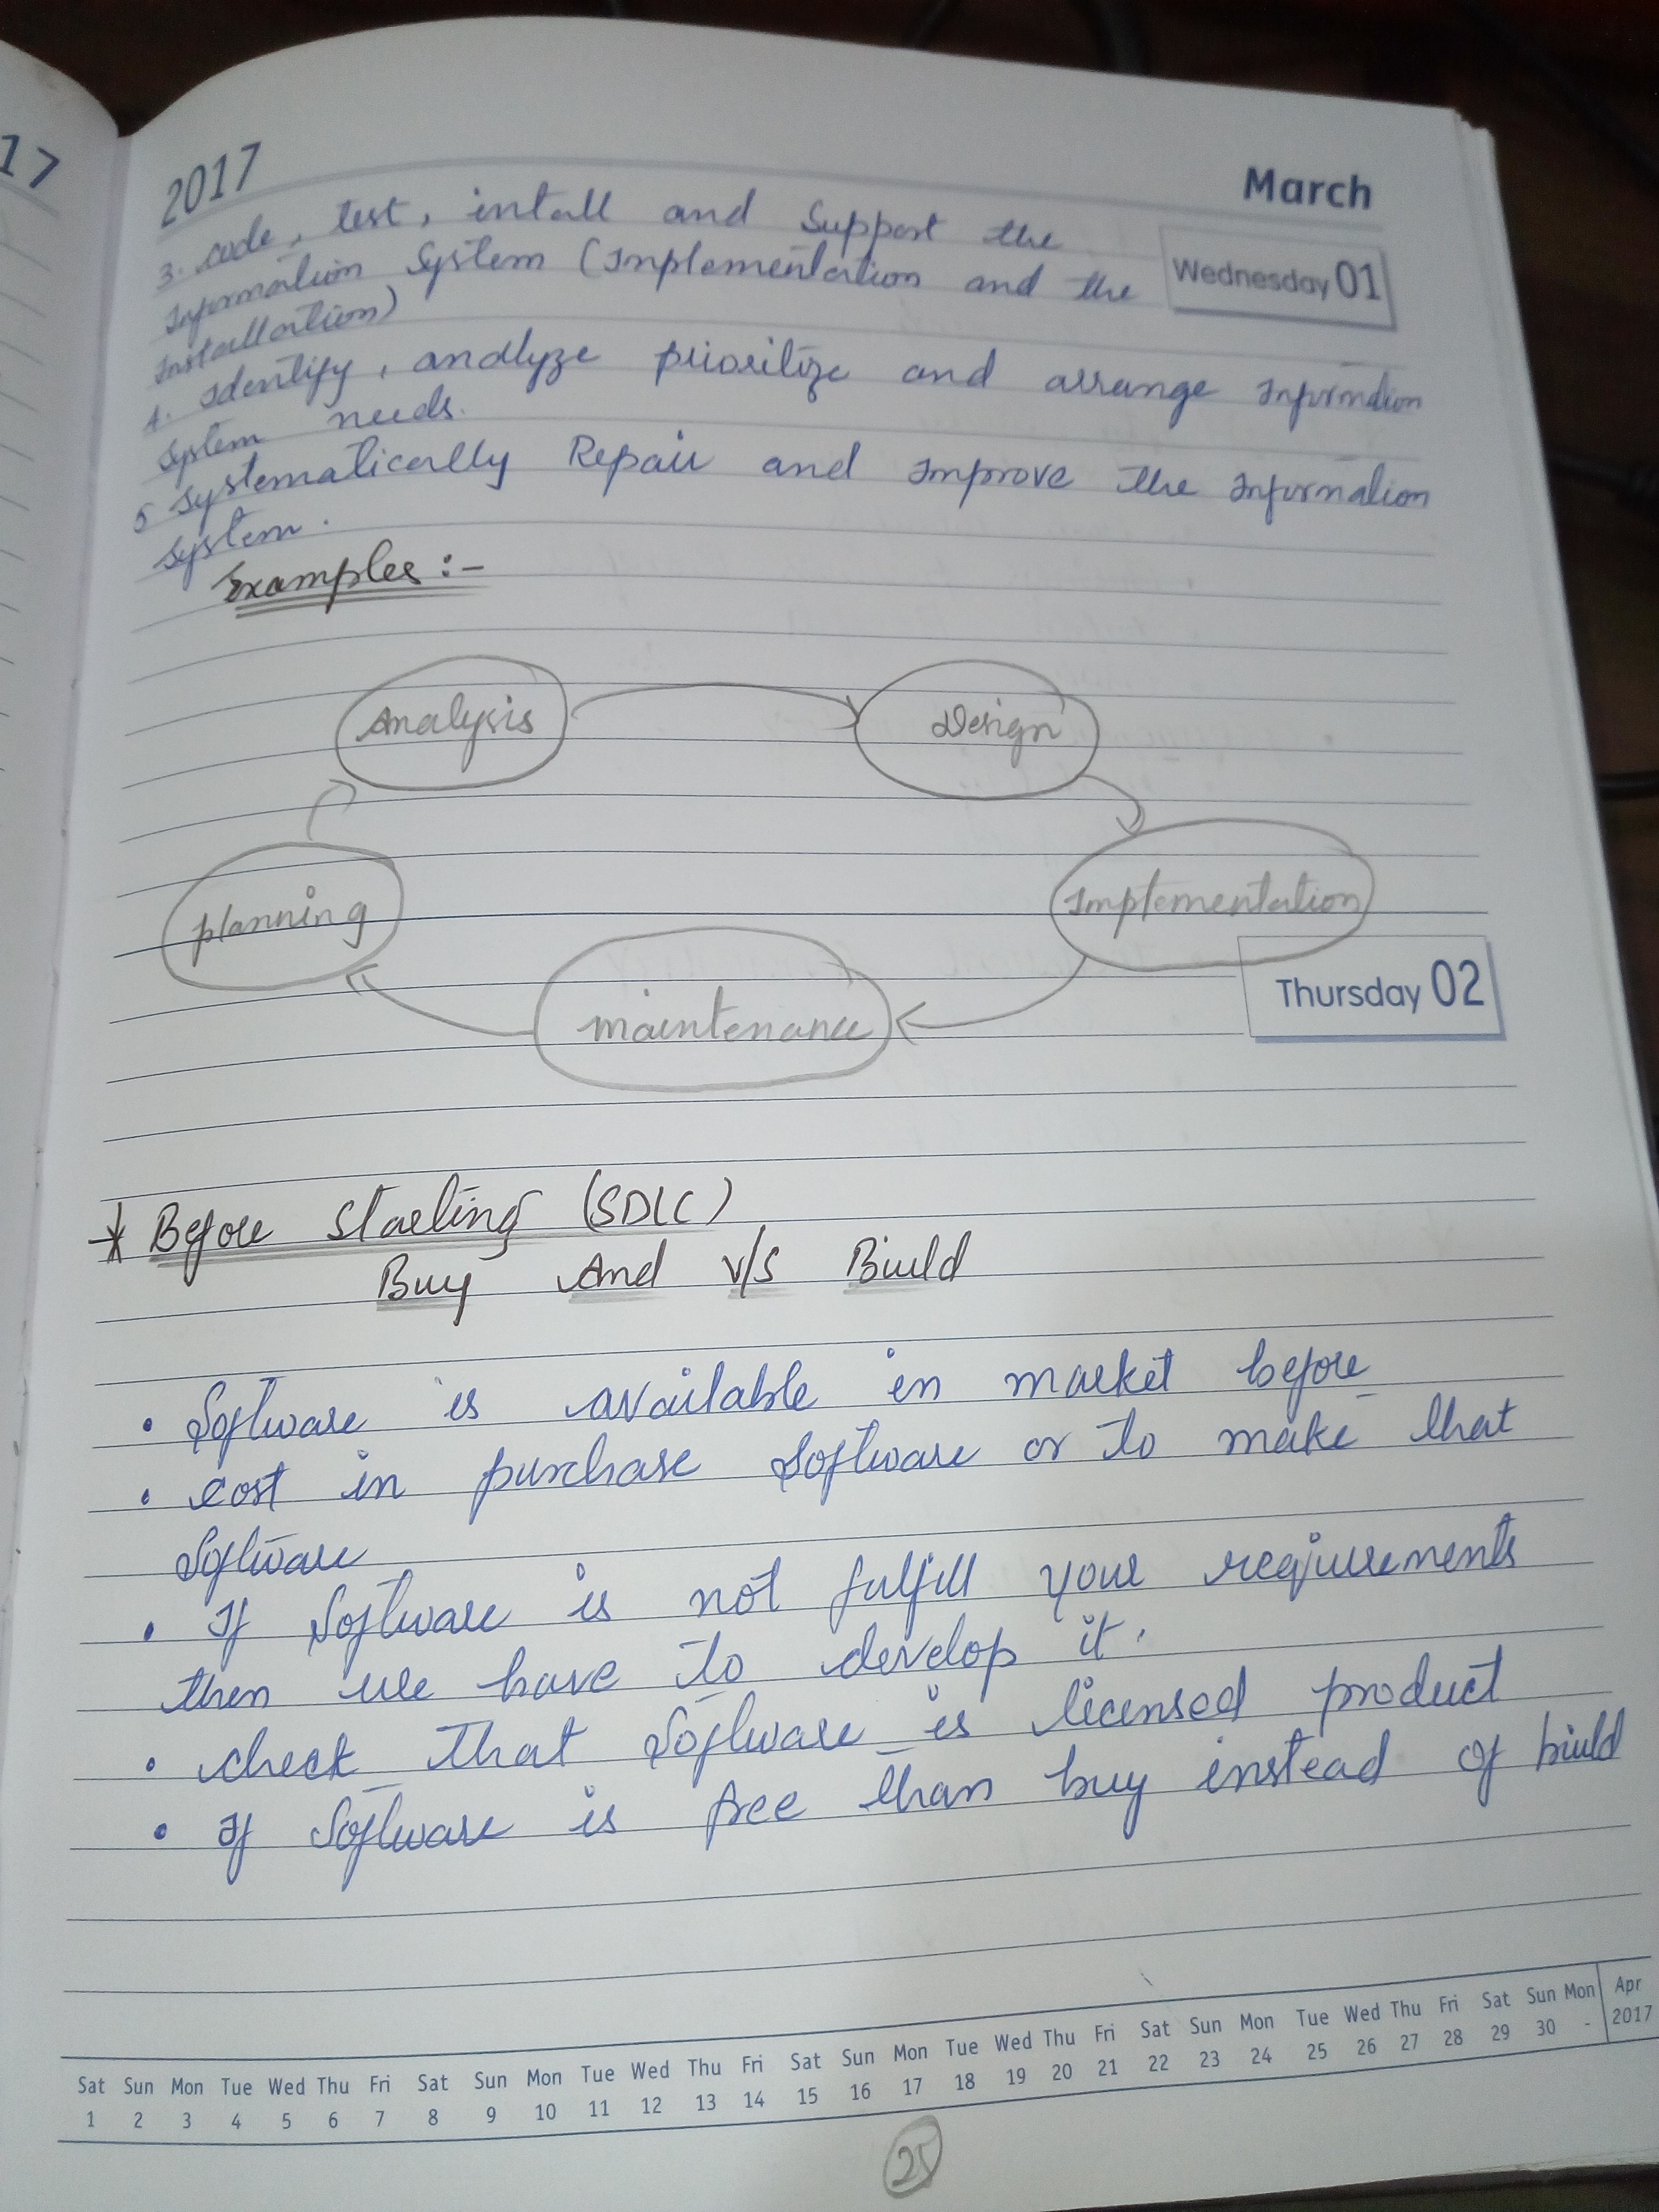 17
2017
March
3. code, test, intall and Support the
Wednesday 01
Information System (Implementation and the
Installation)
4. Identify, analyze prioritize and arrange Information
System needs.
5 Systematically Repair and Improve the Information
System.
Examples :-
Analysis
Design
Planning
Implementation
maintenance
Thursday 02
* Before Starting (SDLC)
Buy And v/s Biuld
• Software is available in market before
• cost in purchase Software or to make that
Software
• If Software is not fulfill your requirements
then we have to develop it.
• check that Software is licensed product
• If Software is free than buy instead of biuld
Sat Sun Mon Tue Wed Thu Fri Sat Sun Mon Tue Wed Thu Fri Sat Sun Mon Tue Wed Thu Fri Sat Sun Mon Tue Wed Thu Fri Sat Sun Mon Apr
1 2 3 4 5 6 7 8 9 10 11 12 13 14 15 16 17 18 19 20 21 22 23 24 25 26 27 28 29 30 - 2017
25